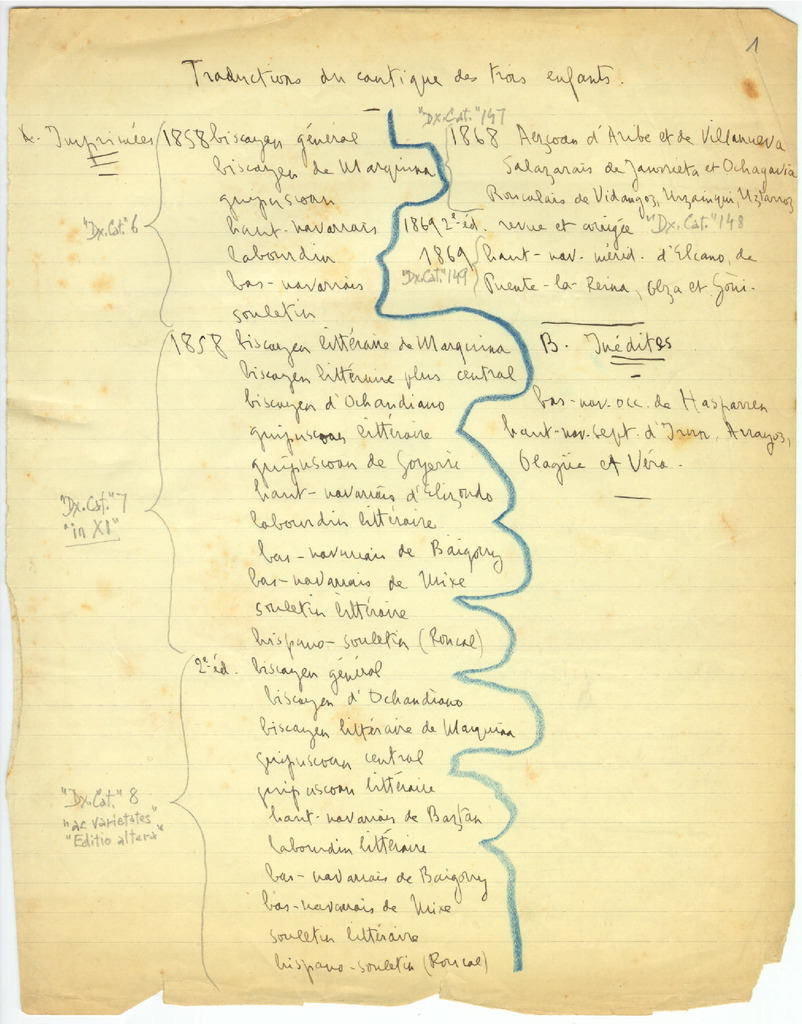 1
Traductions du cantique des trois enfants.
A. Imprimées
"Dx.Cat." 6
1858 biscayen général
biscayen de Marquina
guipuscoan
haut-navarrais
labourdin
bas-navarrais
souletin
"Dx.Cat." 7
"in XI"
1858 biscayen littéraire de Marquina
biscayen littéraire plus central
biscayen d'Ochandiano
guipuscoan littéraire
guipuscoan de Goyerri
haut-navarrais d'Elizondo
labourdin littéraire
bas-navarrais de Baigorry
bas-navarrais de Mixe
souletin littéraire
hispano-souletin (Roncal)
"Dx.Cat." 8
"ac varietates"
"Editio altera"
2e éd. biscayen général
biscayen d'Ochandiano
biscayen littéraire de Marquina
guipuscoan central
guipuscoan littéraire
haut-navarrais de Baztan
labourdin littéraire
bas-navarrais de Baigorry
bas-navarrais de Mixe
souletin littéraire
hispano-souletin (Roncal)
"Dx.Cat." 147
1868 Aezcoan d'Aribe et de Villanueva
Salazarais de Jaurrieta et Ochagavia
Roncalais de Vidangoz, Urzainqui, Uztarroz
1869 2e éd. revue et corrigée "Dx.Cat." 148
1869 haut-nav. mérid. d'Elcano, de
"Dx.Cat." 149
Puente-la-Reina, Olza et Goñi.
B. Inédites
bas-nav. occ. de Hasparren
haut-nav. sept. d'Irun, Arrayoz,
Olagüe et Véra.